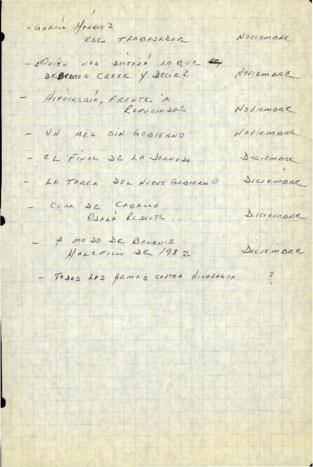 - GARCÍA MÁRQUEZ
ESE TRABAJADOR NOVIEMBRE
- ¿QUIÉN NOS DICTARÁ LO QUE
DEBEMOS CREER Y DECIR? NOVIEMBRE
- HIPOCRESÍA, FRENTE A
REFUGIADOS NOVIEMBRE
- UN MES SIN GOBIERNO NOVIEMBRE
- EL FINAL DE LA JORNADA DICIEMBRE
- LA TAREA DEL NUEVO GOBIERNO DICIEMBRE
- CURA DE CABALLO
OJALÁ RESULTE .... DICIEMBRE
- A MODO DE BALANCE
MALEFICIO DEL 1982 DICIEMBRE
- TODAS LAS ARMAS CONTRA NICARAGUA ?